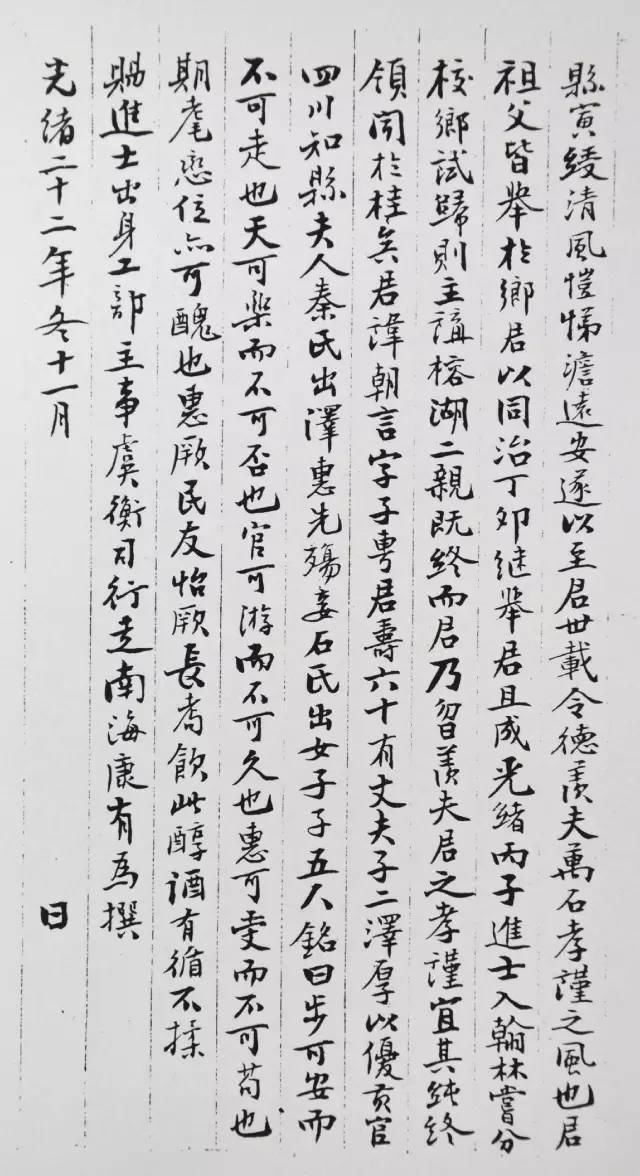 縣寅綾清風愷悌澹遠安遂以至居世載令德羨夫萬石孝謹之風也居
祖父皆舉於鄉居以同治丁卯継舉居且成光緒丙子進士入翰林嘗分
校鄉試歸則主講榕湖二親既終而居乃曶羨夫居之孝謹宜其純終
領聞於桂矣君諱朝言字子專君壽六十有丈夫子二澤厚以優貢官
四川知縣夫人秦氏出澤惠先殤妾石氏出女子子五人銘曰步可安而
不可走也天可樂而不可否也官可游而不可久也惠可受而不可苟也
期耄戀位亦可醜也惠厥民友怡厥長耇飲此醇酒有循不揉
賜進士出身工部主事虞衡司行走南海康有為撰
光緒二十二年冬十一月 日